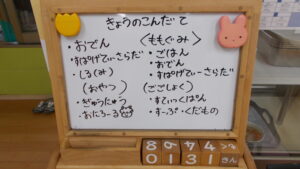 きょうのこんだて
・おでん
・すぱげてぃーさらだ
・しるくみ)
(おやつ)
・ぎゅうにゅう
・おにろーる
〈ももぐみ〉
・ごはん
・おでん
・すぱげてぃーさらだ
(ごごしょく)
・すてぃっくぱん
・すーぷ・くだもの